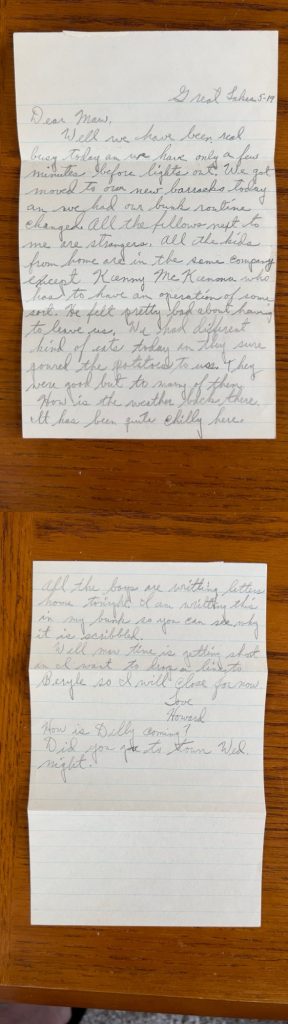 Great Lakes 5-19
Dear Maw,
Well we have been real
busy today an we have only a few
minutes before lights out. We got
moved to our new barracks today
an we had our bunk routine
changed. All the fillows next to
me are strangers. All the kids
from home are in the same company
except Kenny McKunona who
has to have an operation of some
sort. He felt pretty bad about having
to leave us. We had different
kind of eats today an they sure
poured the potatoes to us. They
were good but to many of them.
How is the weather back there.
It has been quite chilly here.
All the boys are writting letters
home tonight. I am writting this
in my bunk so you can see why
it is scribbled.
Well maw time is getting short
an I want to drop a line to
Beryle so I will close for now
Love
Howard
How is Dilly coming?
Did you go to town Wed.
night.